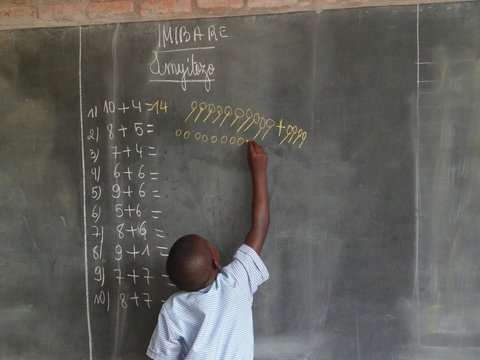 IMIBARE
Umyitozo
1) 10 + 4 = 14
2) 8 + 5 =
3) 7 + 4 =
4) 6 + 6 =
5) 9 + 6 =
6) 5 + 6 =
7) 8 + 6 =
8) 9 + 1 =
9) 7 + 7 =
10) 8 + 7 =